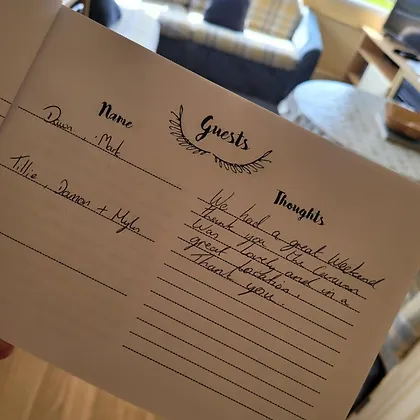 Guests
Name
Dawn, Mark
Tillie, Damon + Myles
Thoughts
We had a great Weekend
thank you. The Caravan
was lovely and in a
great location.
Thank you